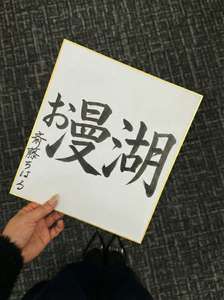 お漫湖
斎藤ちはる